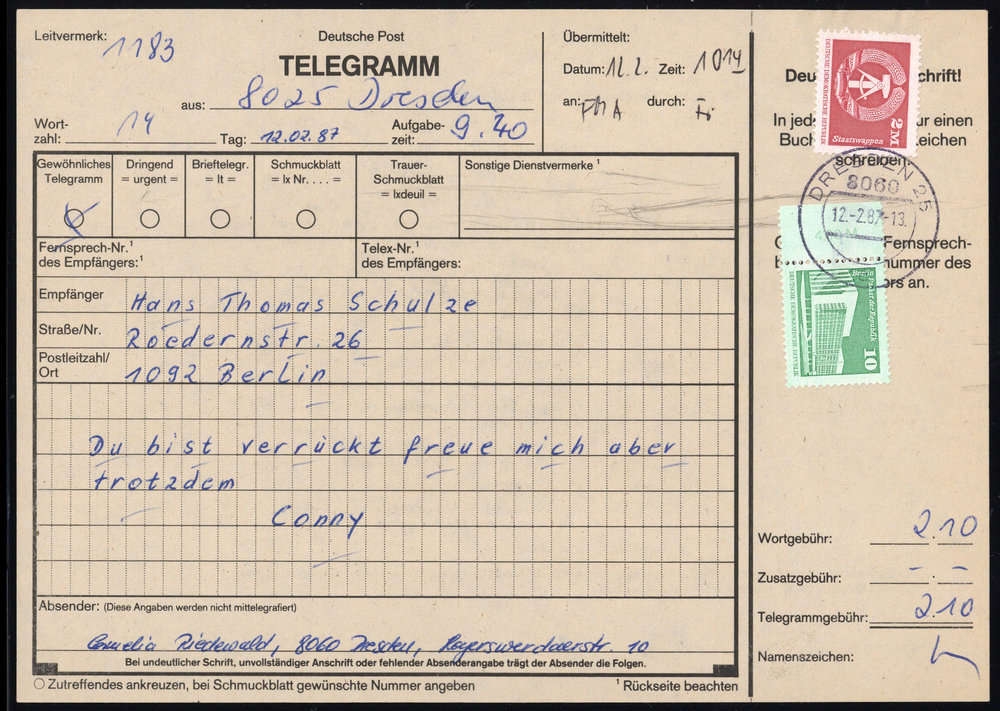 Leitvermerk: 1183
Deutsche Post
TELEGRAMM
aus: 8025 Dresden
Wort-
zahl: 14
Tag: 12.02.87
Aufgabe-
zeit: 9.40
Übermittelt:
Datum: 12.2. Zeit: 1014
an: durch:
Gewöhnliches
Telegramm
Dringend
= urgent =
Brieftelegr.
= lt =
Schmuckblatt
= lx Nr. . . . =
Trauer-
Schmuckblatt
= lxdeuil =
Sonstige Dienstvermerke ¹
Fernsprech-Nr.¹
des Empfängers:¹
Telex-Nr.¹
des Empfängers:
Empfänger Hans Thomas Schulze
Straße/Nr. Roedernstr. 26
Postleitzahl/
Ort 1092 Berlin
Du bist verrückt freue mich aber
trotzdem
Conny
Absender: (Diese Angaben werden nicht mittelegrafiert)
Cornelia Riedewald, 8060 Dresden, Hoyerswerdaerstr. 10
Bei undeutlicher Schrift, unvollständiger Anschrift oder fehlender Absenderangabe trägt der Absender die Folgen.
Zutreffendes ankreuzen, bei Schmuckblatt gewünschte Nummer angeben
¹ Rückseite beachten
Deu chrift!
In jede ür einen
Buch eichen
schreiben
G Fernsprech-
nummer des
ors an.
DEUTSCHE DEMOKRATISCHE REPUBLIK
Staatswappen
2 M
DRESDEN 25
8060
12.-2.87-13
Berlin, Palast der Republik
DEUTSCHE DEMOKRATISCHE REPUBLIK
10
Wortgebühr: 2.10
Zusatzgebühr: - . -
Telegrammgebühr: 2.10
Namenszeichen: